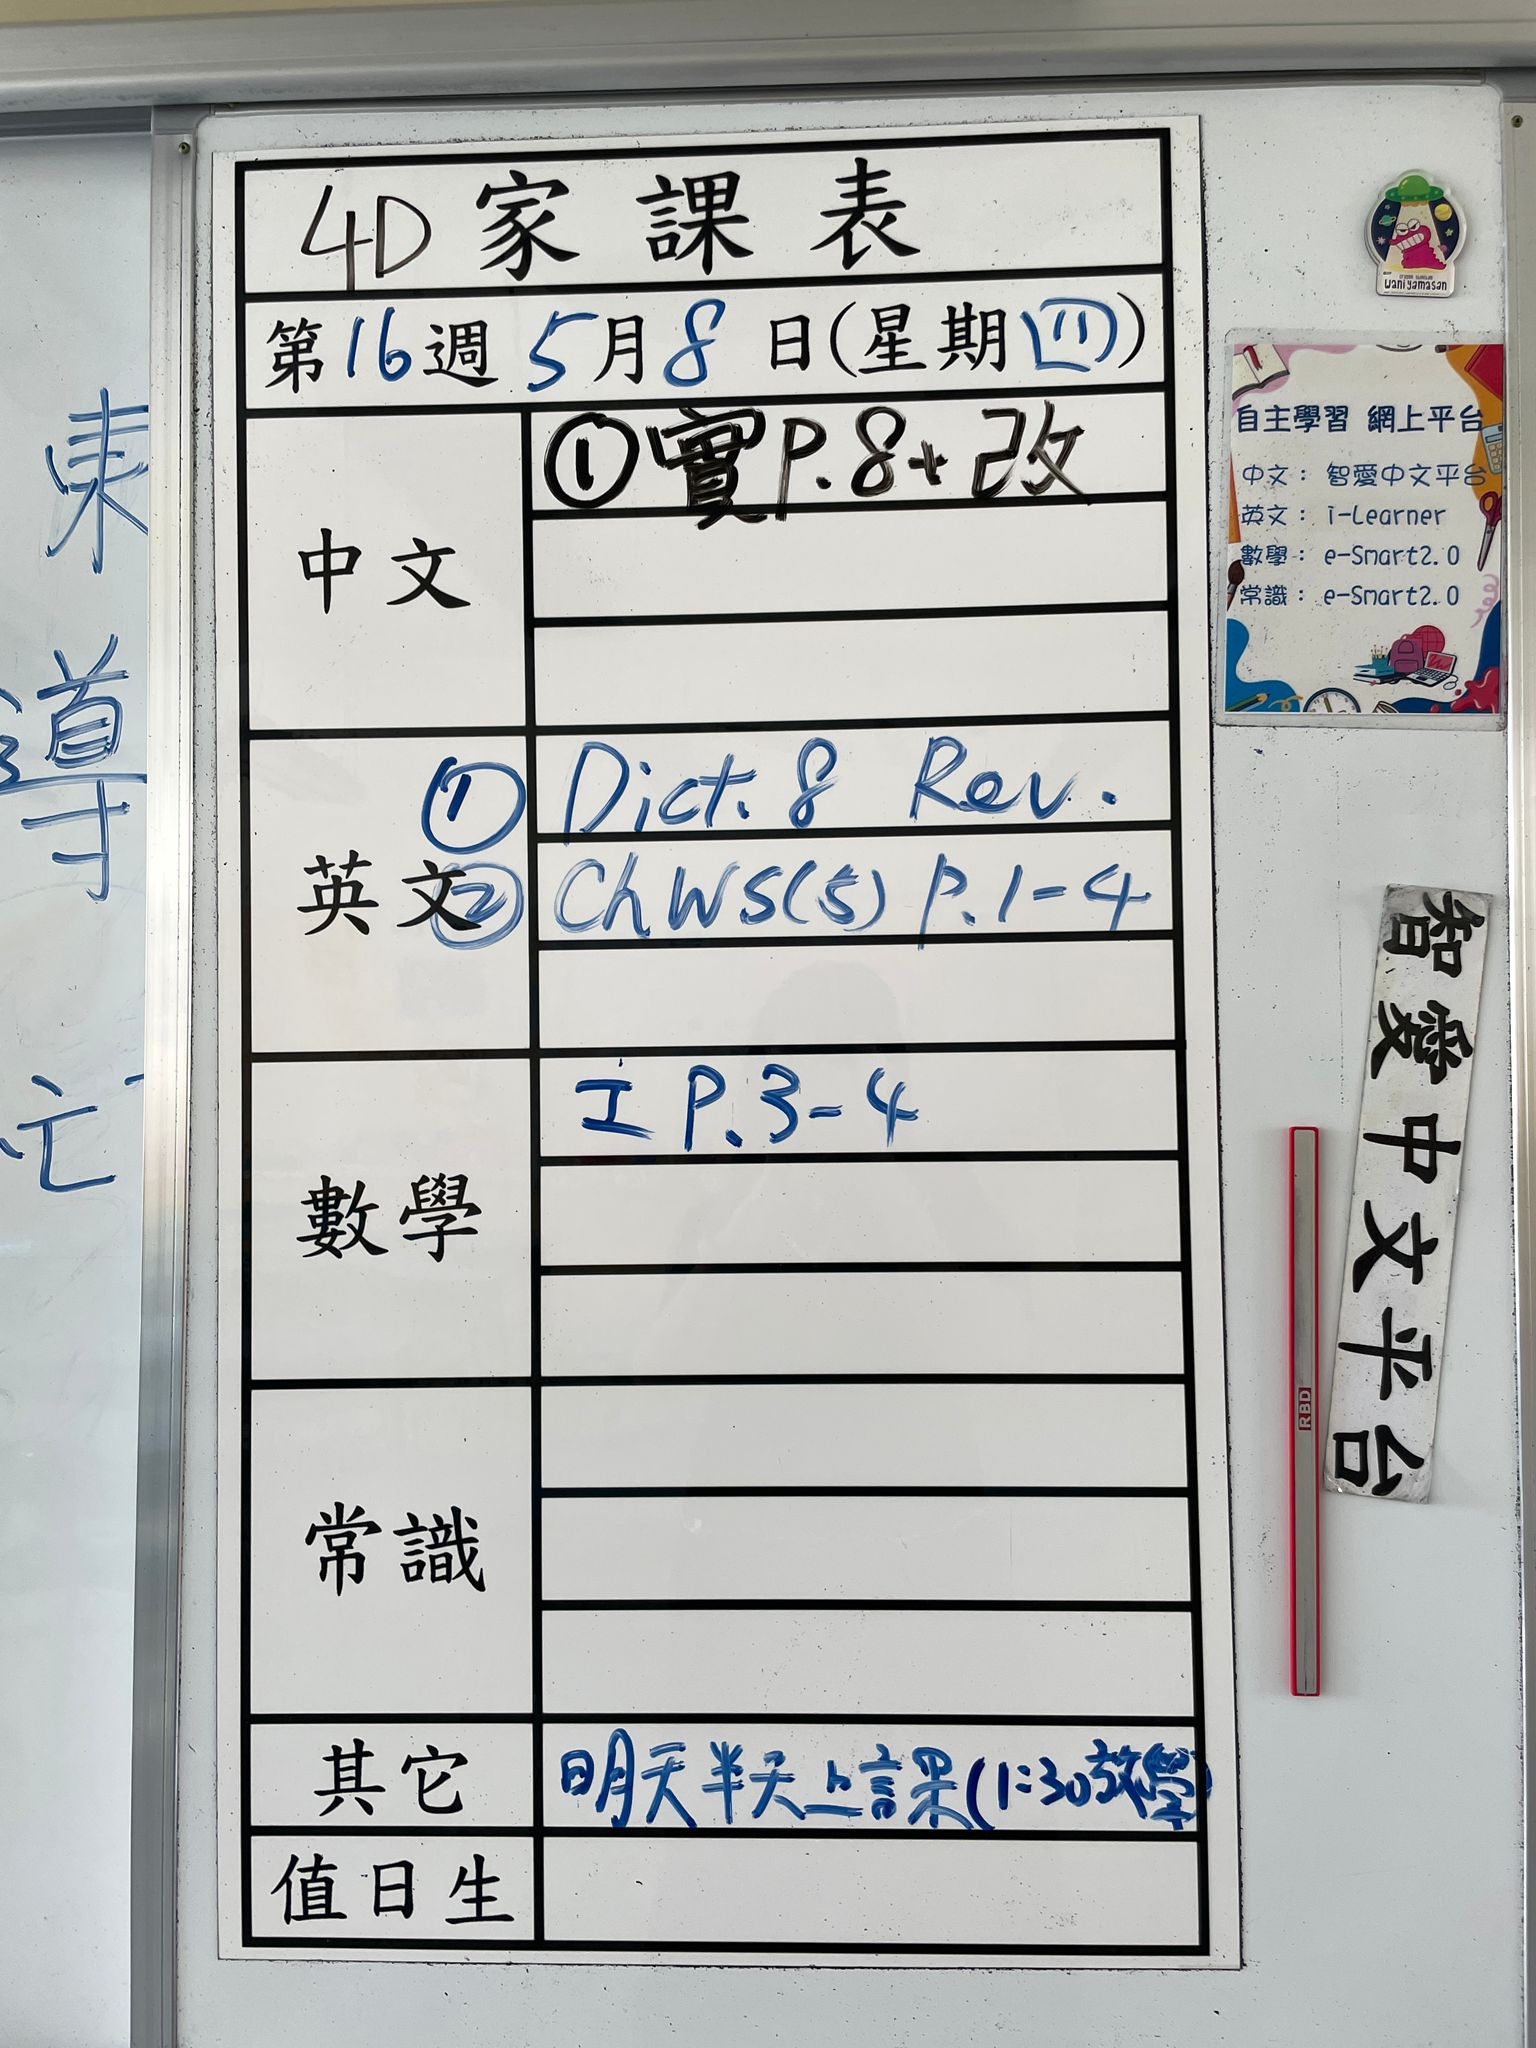 4D 家課表
第16週 5月8日(星期四)
中文
①實P.8+改
英文
① Dict. 8 Rev.
② ChWS(5) P.1-4
數學
工 P.3-4
常識
其它
明天半天上課(1:30放學)
值日生
東
導
亡
waniyamasan
自主學習 網上平台
中文： 智愛中文平台
英文： i-Learner
數學： e-Smart2.0
常識： e-Smart2.0
智愛中文平台
RBD